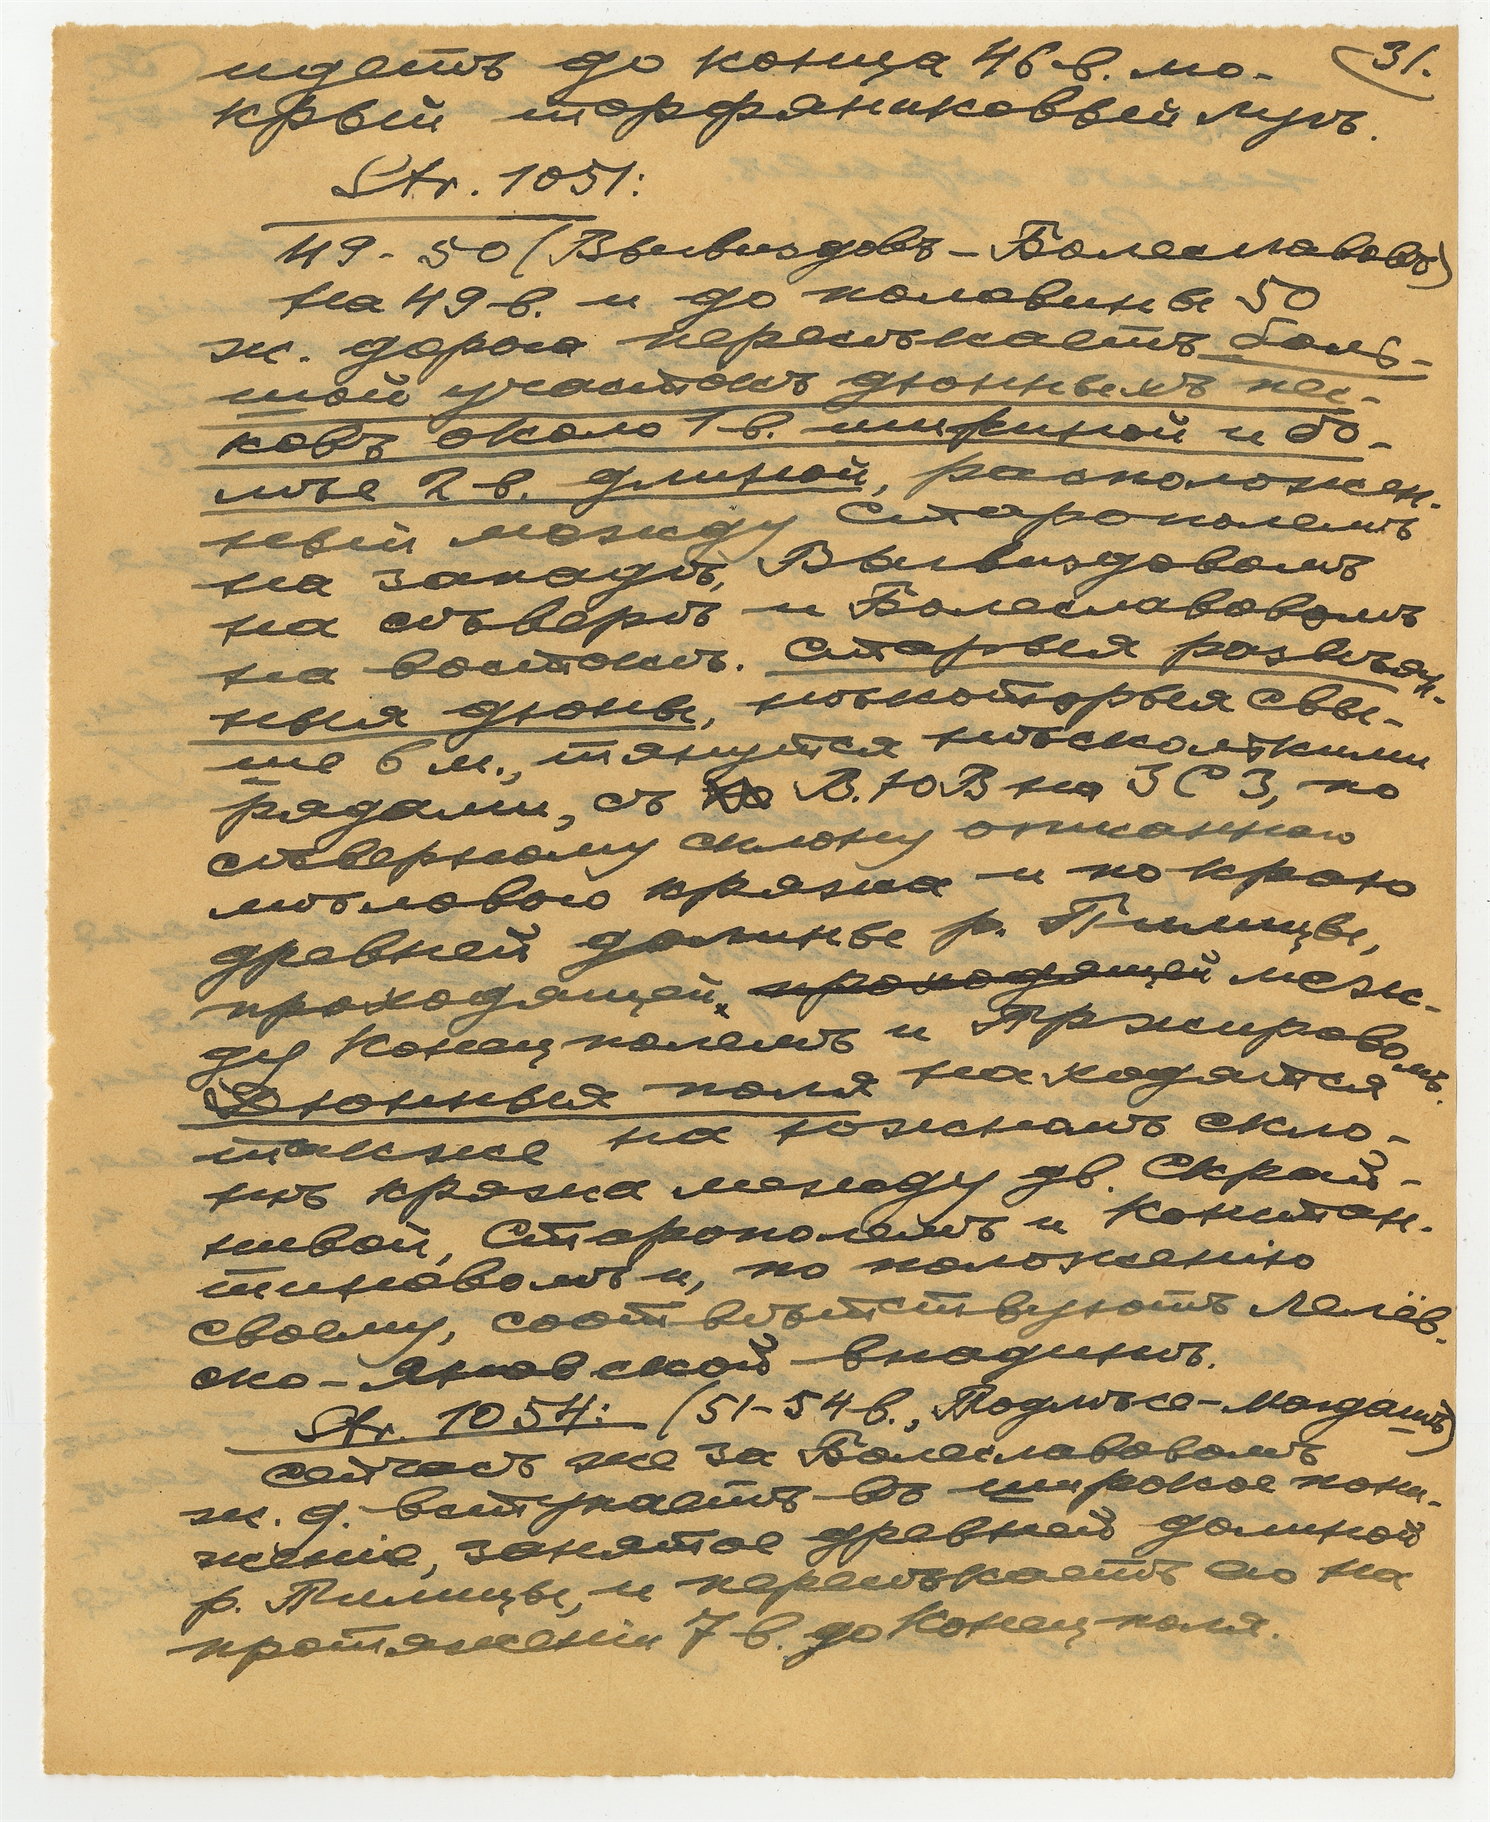 31.
идетъ до конца 46 в. мо-
крый торфяниковый лугъ.
Str. 1051:
49-50 (Вывиздовъ-Болеславовъ)
На 49 в. и до половины 50
ж. дорога пересѣкаетъ боль-
шой участокъ дюнныхъ пес-
ковъ около 1 в. шириной и бо-
лѣе 2 в. длиной, расположен-
ный между Старополемъ
на западѣ, Вывиздовомъ
на сѣверѣ и Болеславовомъ
на востокѣ. Старыя развѣян-
ныя дюны, нѣкоторыя свы-
ше 6 м., тянутся нѣсколькими
рядами, съ В.ЮВ на ЗСЗ, по
сѣверному склону описаннаго
мѣлового кряжа и по краю
древней долины р. Пилицы,
проходящей, проходящей меж-
ду Конецполемъ и Пржировомъ.
Дюнныя поля находятся
также на южномъ скло-
нѣ кряжа между дв. Скрай-
нивой, Старополемъ и Констан-
тиновомъ и, по положенію
своему, соотвѣтствуютъ Лелёв-
ско-Яновской впадинѣ.
Str. 1054: (51-54 в., Подлѣсе-Магдашъ)
Сейчасъ же за Болеславовомъ
ж. д. вступаетъ въ широкое пони-
женіе, занятое древней долиной
р. Пилицы, и пересѣкаетъ ее на
протяженіи 7 в. до Конецполя.